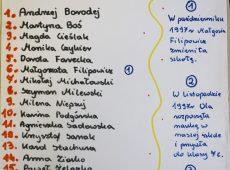 1. Andrzej Borodej
2. Martyna Boś
3. Magda Cieślak
4. Monika Cegker
5. Dorota Farecka
6. Małgorzata Filipowicz ①
7. Mikołaj Michałowski
8. Szymon Milewski
9. Milena Niezguj
10. Karina Podgórska
11. Agnieszka Sadowska
12. Krzysztof Janak
13. Karol Stachura
14. Anna Zioło
15. Paweł Zelanka
①
W październiku
1997r Małgosia
Filipowicz
zmieniła
szkołę.
②
W listopadzie
1997r Ola
rozpoczęła
naukę w
naszej szkole
i przyszła
do klasy